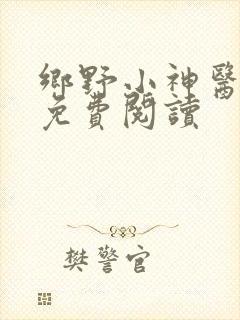 鄉野小神醫
免費閱讀
樊警官